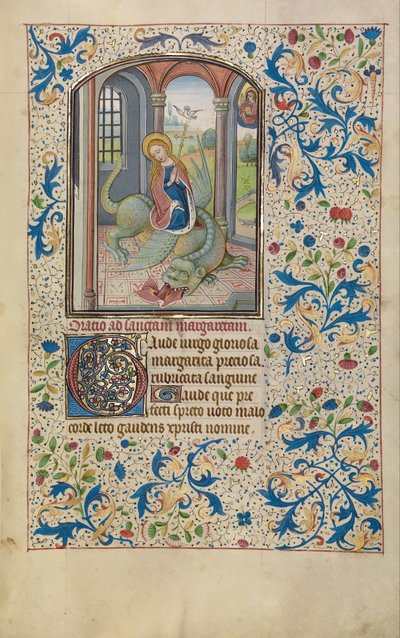 Oratio ad sanctam margaretam.
Gaude virgo gloriosa
margarita preciosa.
rubricata sanguine
Gaude que pre
fecti spreto uoto maio
corde leto gaudens xpristi nomine